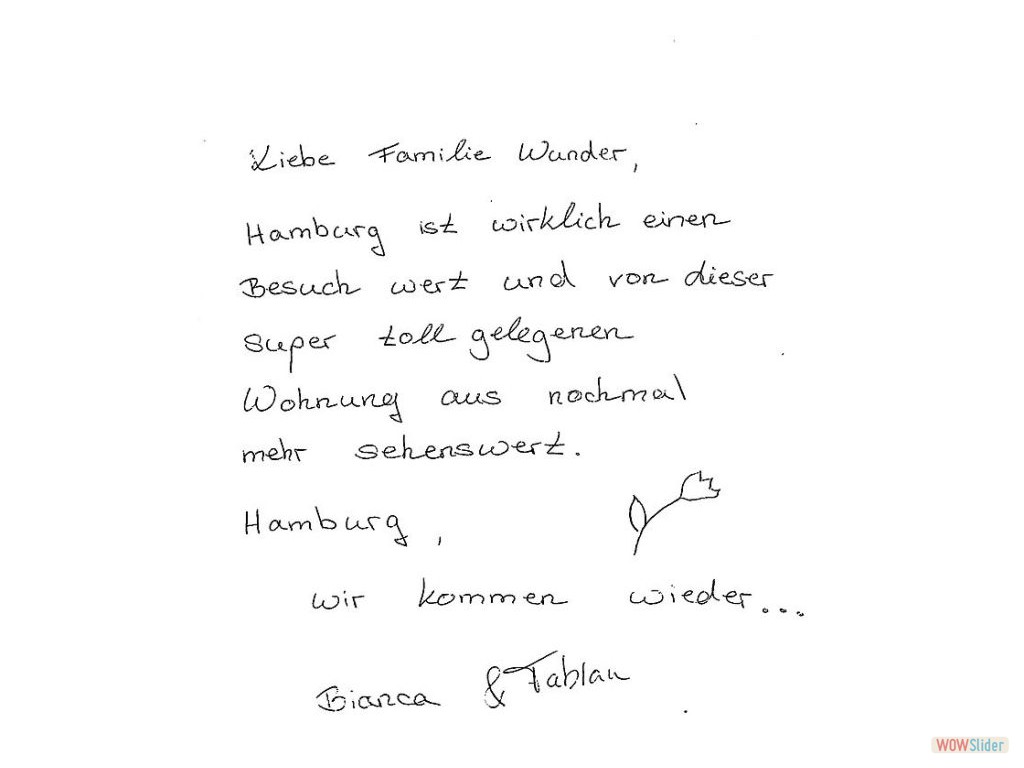 Liebe Familie Wunder,
Hamburg ist wirklich einen
Besuch wert und von dieser
super toll gelegenen
Wohnung aus nochmal
mehr sehenswert.
Hamburg,
wir kommen wieder...
Bianca & Fabian
WOWSlider